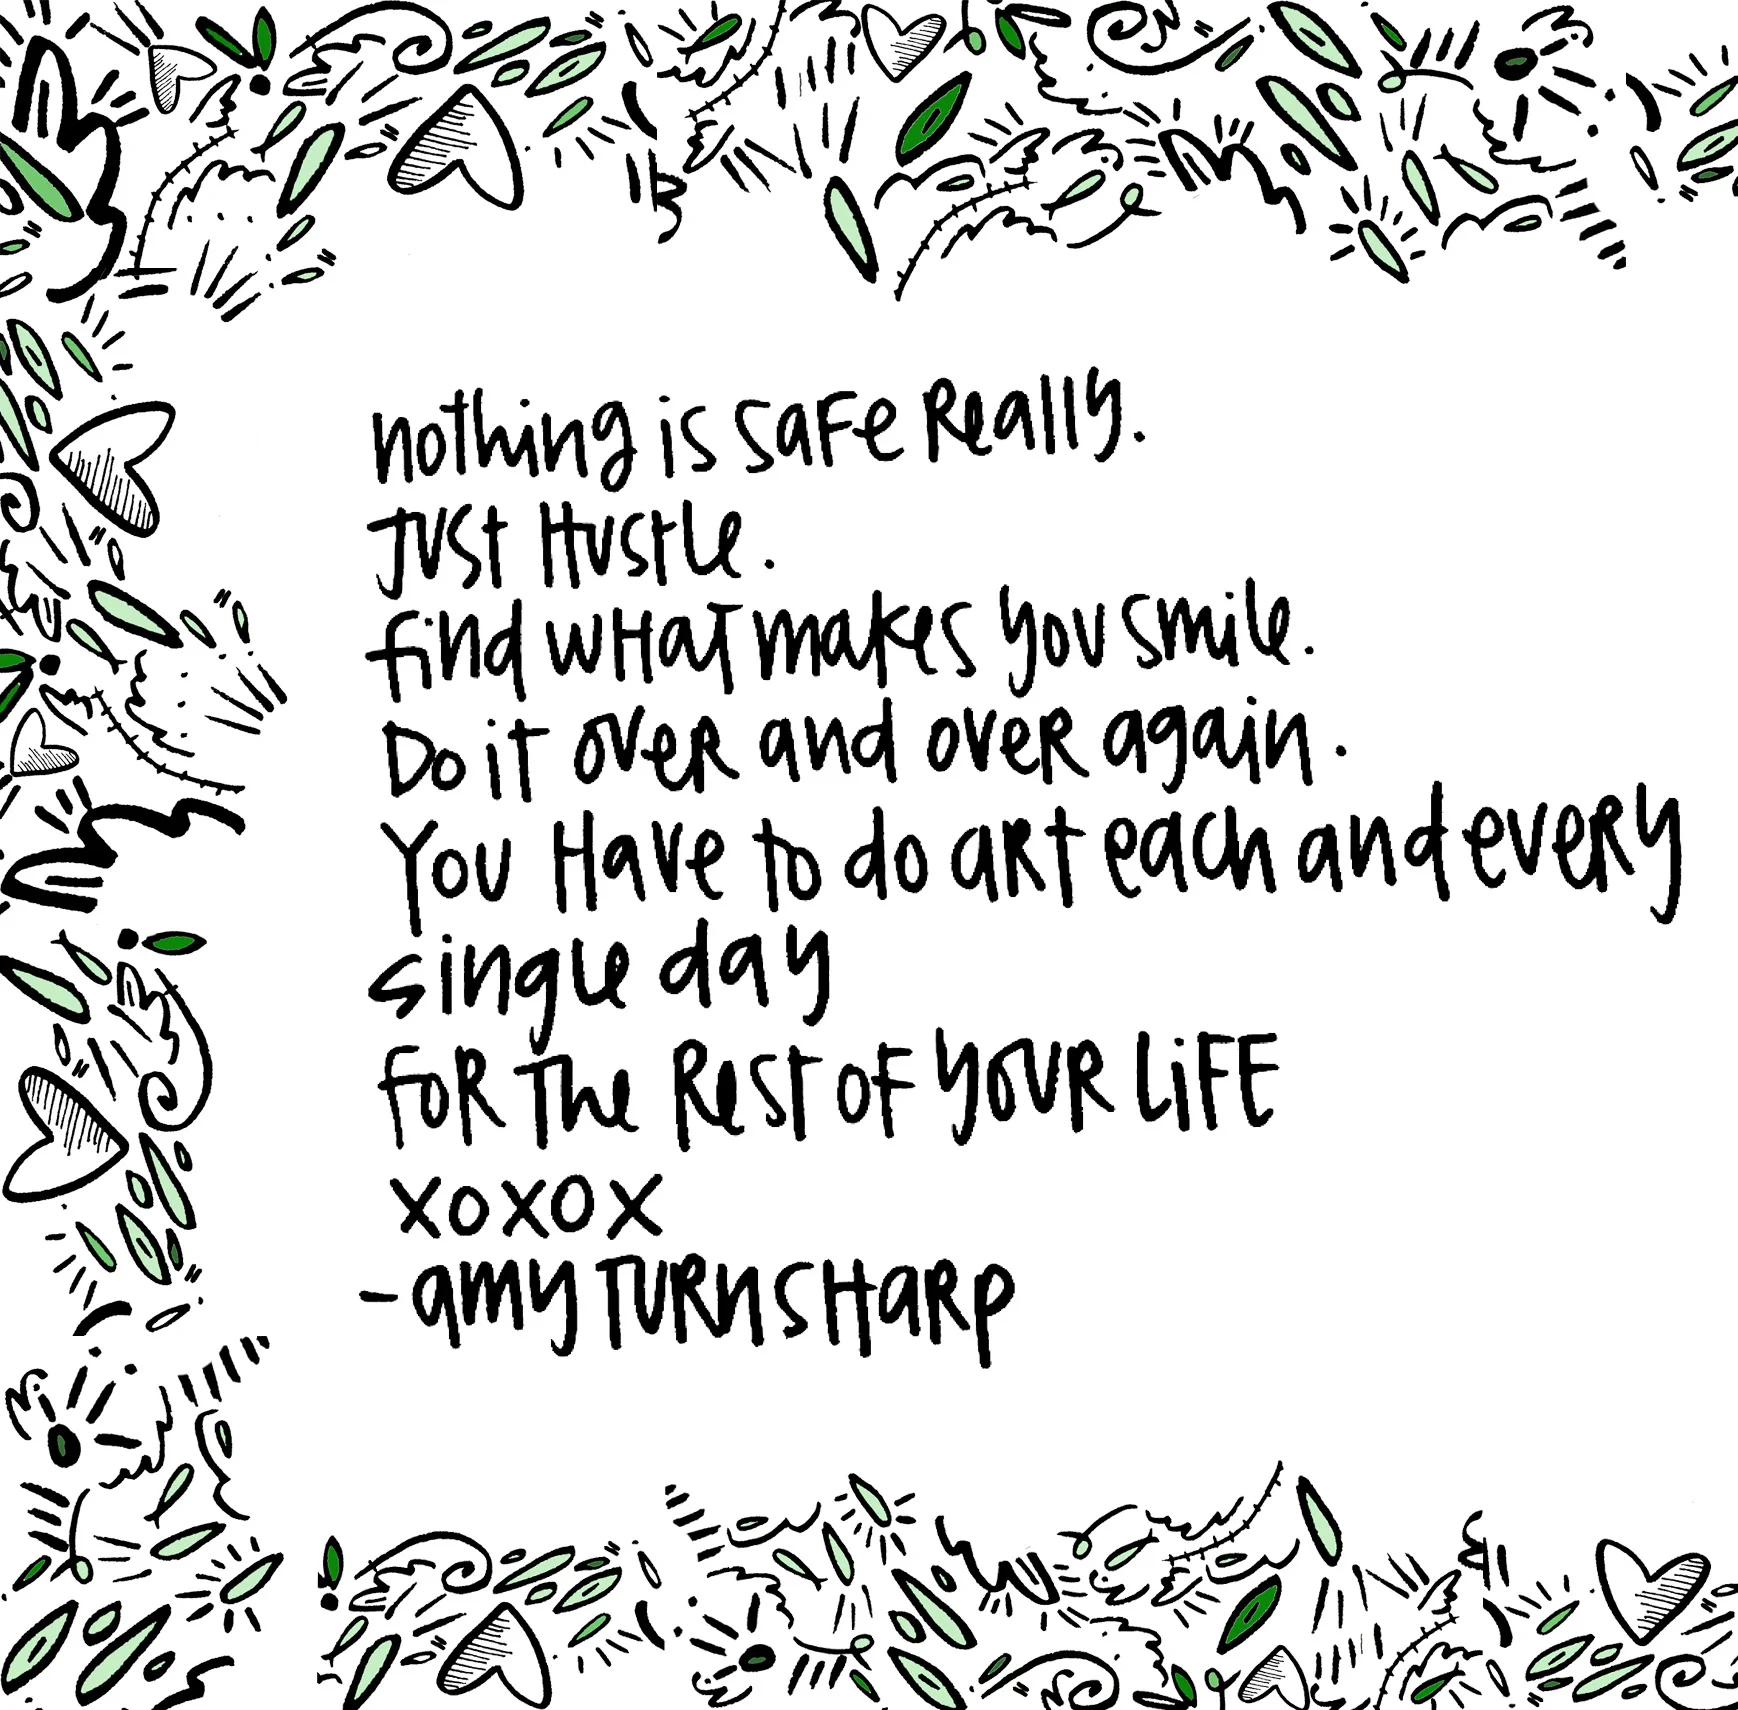 nothing is safe really.
Just Hustle.
find what makes you smile.
Do it over and over again.
You have to do art each and every
single day
for the rest of your life
xoxox
- amy turn sharp